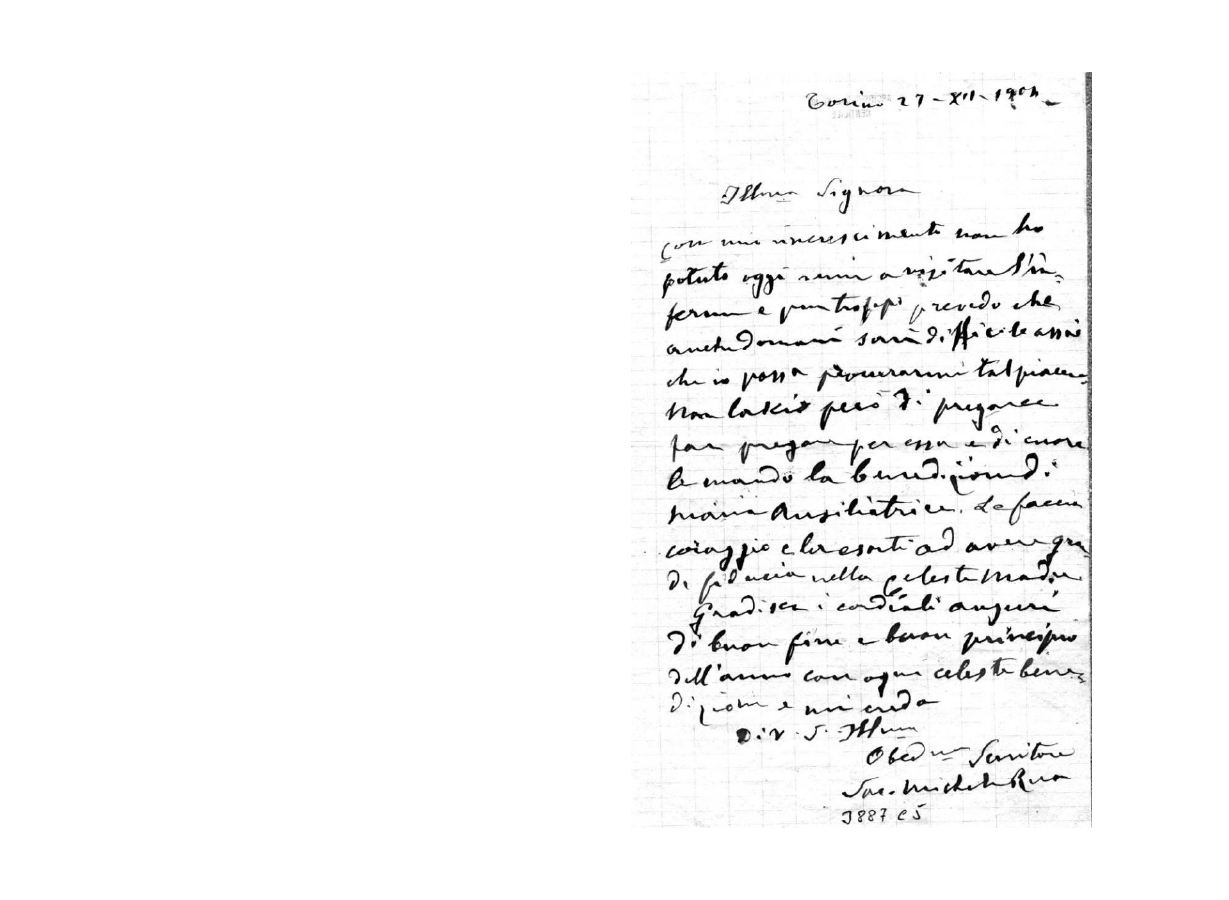 Torino 27-XII-190
Ill.ma Signora
Con mio rincrescimento non ho
potuto oggi venire a visitare l'in=
ferma e purtroppo prevedo che
anche domani sarà difficile assai
che io possa procurarmi tal piacere
Non lascio però di pregare e
far pregare per essa e di cuore
le mando la benedizione di
Maria Ausiliatrice. Le faccia
coraggio e la esorti ad avere gran
di fiducia nella celeste Madre
Gradisca i cordiali auguri
di buon fine e buon principio
dell'anno con ogni celeste bene=
dizione e mi creda
Di V. S. Ill.ma
Obed.mo Servitore
Sac. Michele Rua
3887 C5